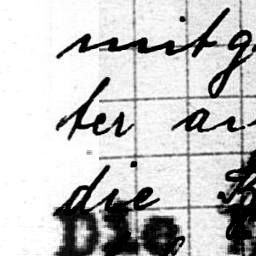 mitg
ter an
die B
Die